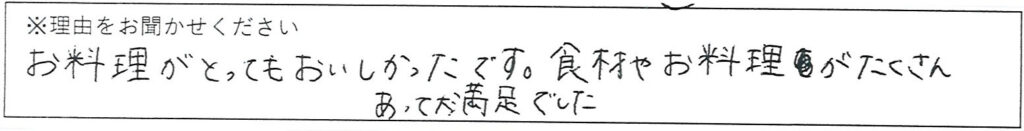 ※理由をお聞かせください
お料理がとってもおいしかったです。食材やお料理がたくさん
あって大満足でした